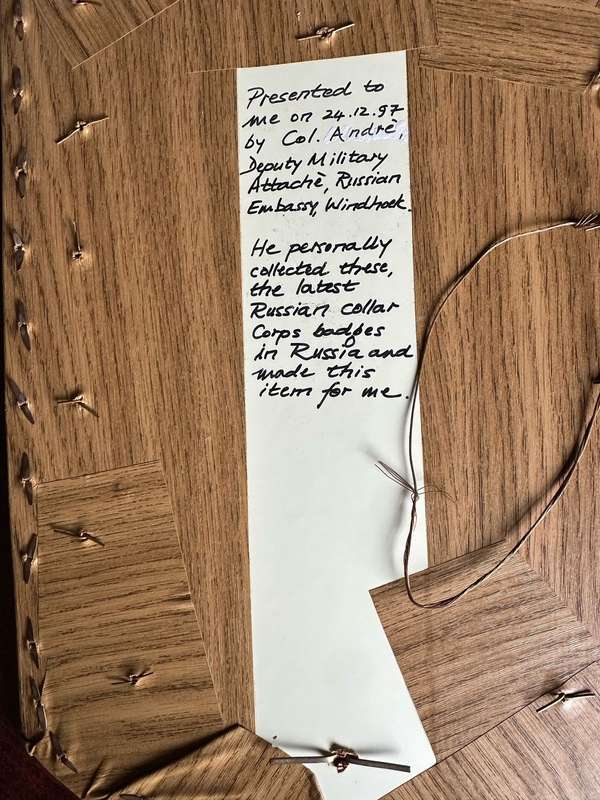 Presented to
me on 24.12.97
by Col. Andrè,
Deputy Military
Attachè, Russian
Embassy, Windhoek.
He personally
collected these,
the latest
Russian collar
Corps badges
in Russia and
made this
item for me.